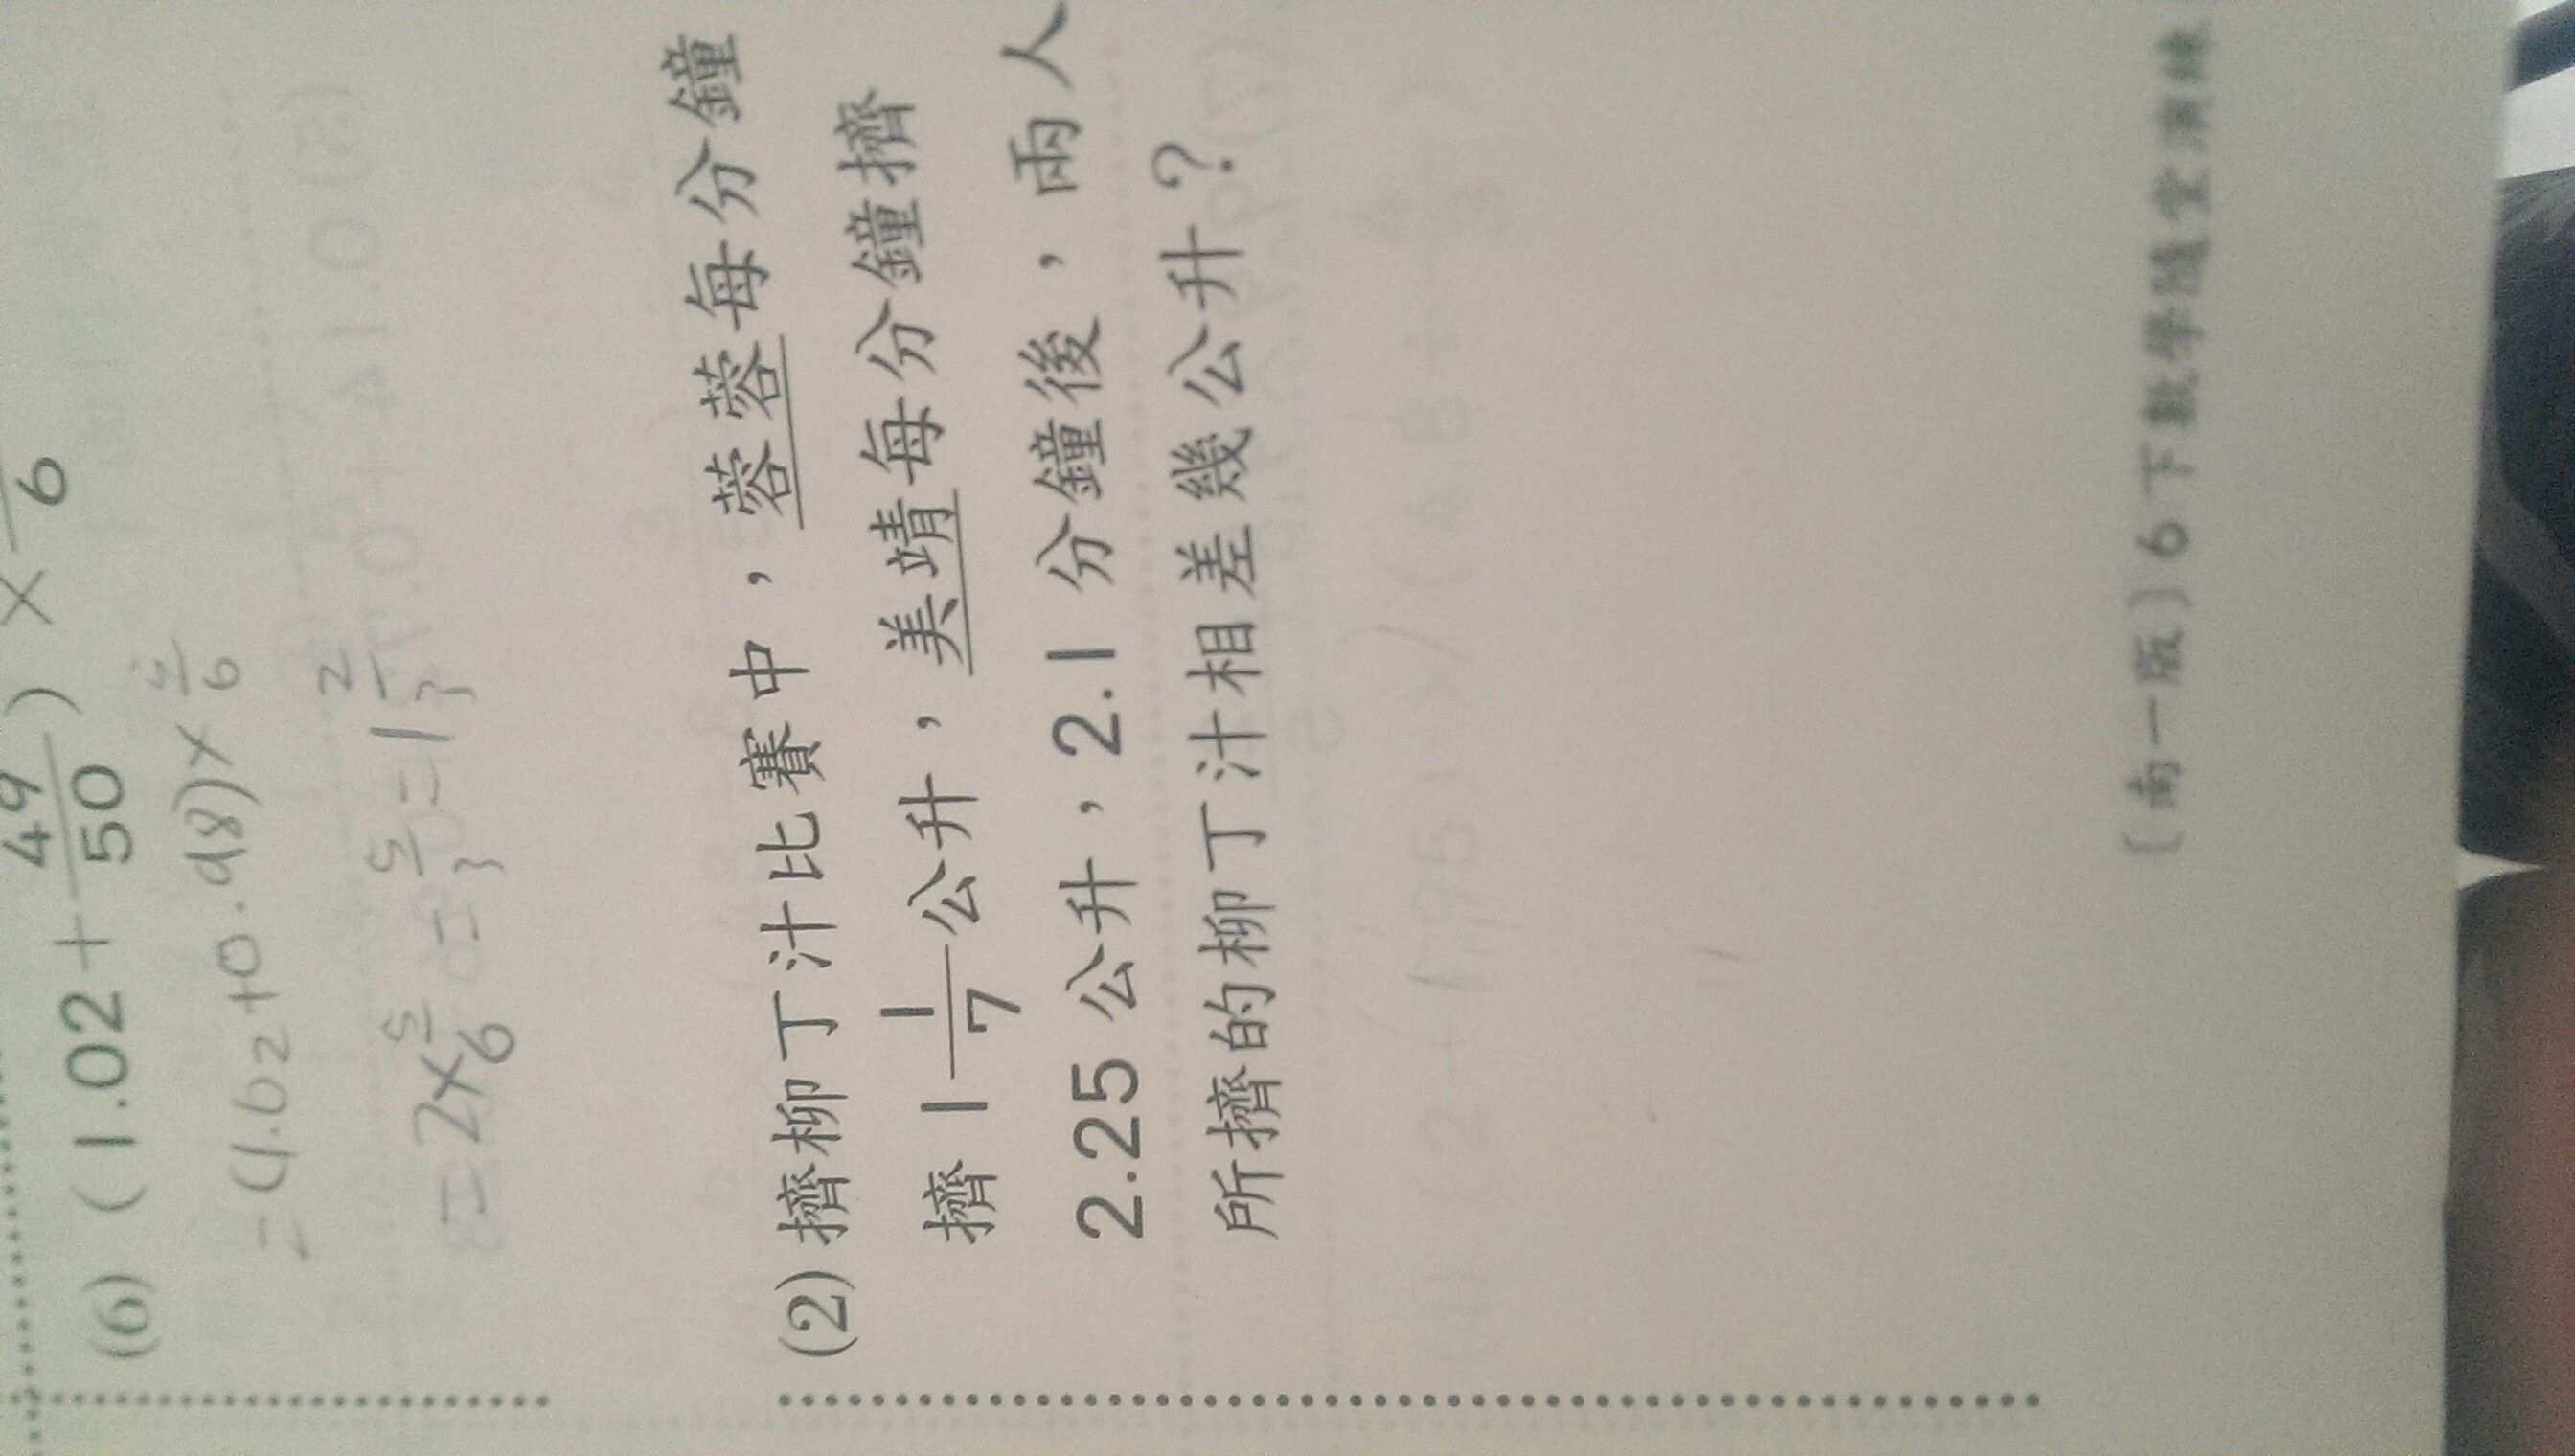 (6) ( 1.02 + 49/50 ) ×
= (1.02 + 0.98) × 6
= 2 × 5/6 = 5/3 = 1 2/3
(2) 擠柳丁汁比賽中，蓉蓉每分鐘
擠 1 1/7 公升，美靖每分鐘擠
2.25 公升，2.1 分鐘後，兩人
所擠的柳丁汁相差幾公升？
〔南一版〕6 下數學隨堂演練